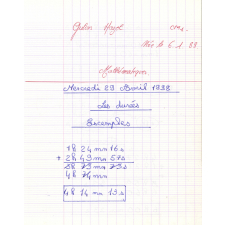 CM2
Née le 6.1.88
Mathématiques
Mercredi 29 Avril 1998
Les durées
Exemples
1h 24 mn 16s
+ 2h 49 mn 57s
3h 73 mn 73s
4h 14 mn
4h 14 mn 13s